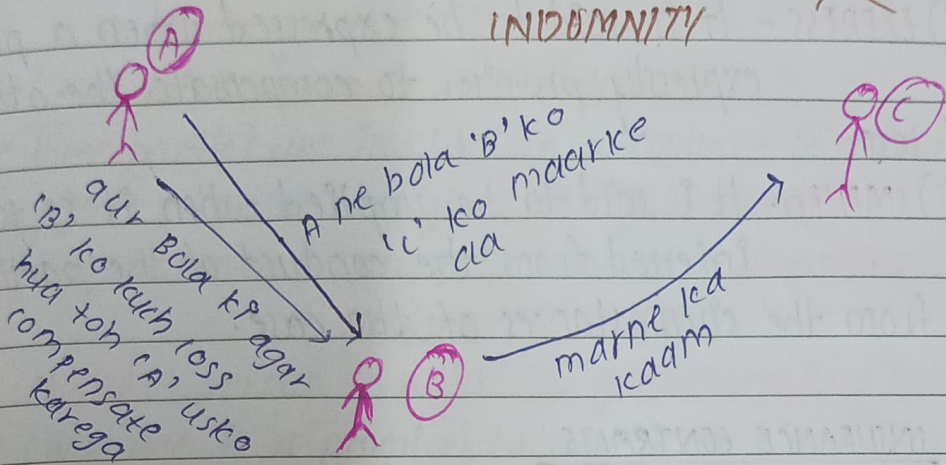 INDEMNITY
A
C
A ne bola 'B' ko
'C' ko maarke
aa
aur Bola ki agar
'B' ko kuch loss
hua toh 'A' usko
compensate
karega
B
marne ka
kaam